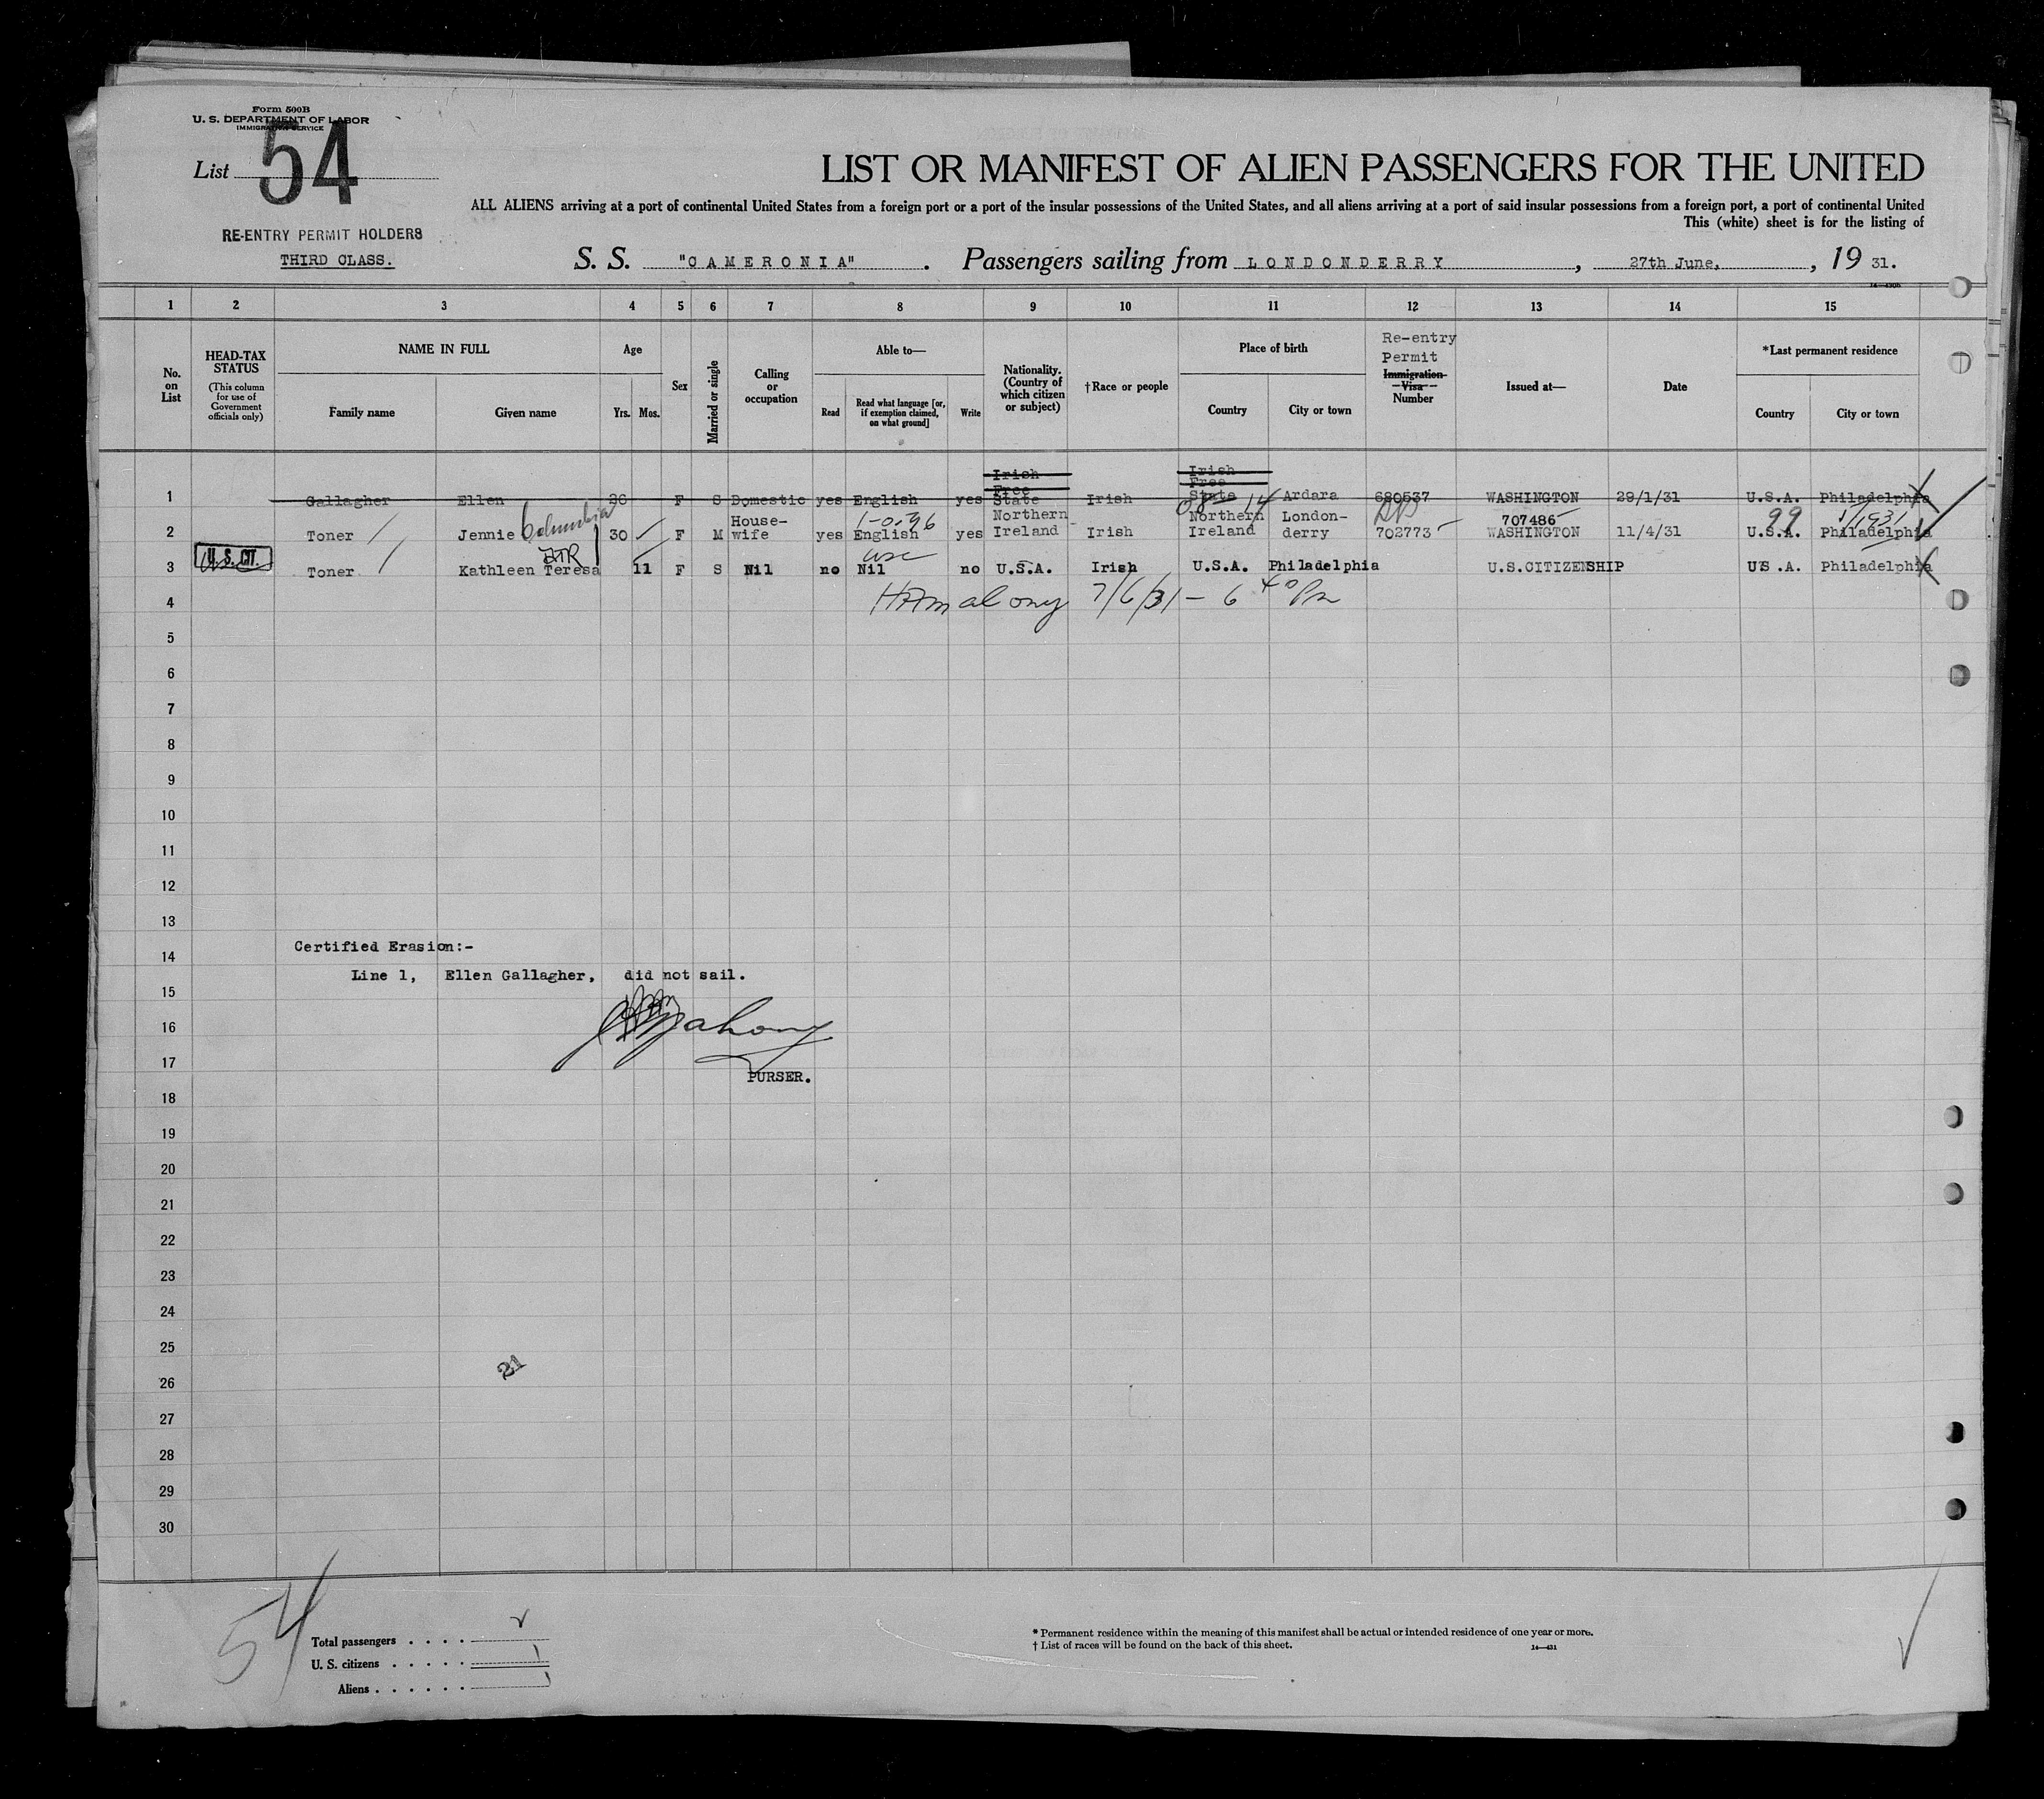 Form 500B
U. S. DEPARTMENT OF LABOR
IMMIGRATION SERVICE
List 54
RE-ENTRY PERMIT HOLDERS
THIRD CLASS.
LIST OR MANIFEST OF ALIEN PASSENGERS FOR THE UNITED
ALL ALIENS arriving at a port of continental United States from a foreign port or a port of the insular possessions of the United States, and all aliens arriving at a port of said insular possessions from a foreign port, a port of continental United
This (white) sheet is for the listing of
S. S. "CAMERONIA". Passengers sailing from LONDONDERRY, 27th June, , 19 31.
1 2 3 4 5 6 7 8 9 10 11 12 13 14 15
No. on List
HEAD-TAX STATUS
(This column for use of Government officials only)
NAME IN FULL
Family name
Given name
Age
Yrs. Mos.
Sex
Married or single
Calling or occupation
Able to—
Read
Read what language [or, if exemption claimed, on what ground]
Write
Nationality. (Country of which citizen or subject)
†Race or people
Place of birth
Country
City or town
Re-entry Permit
Immigration Visa
Number
Issued at—
Date
*Last permanent residence
Country
City or town
1 Gallagher Ellen 26 F S Domestic yes English yes Irish Free State Irish Irish Free State Ardara 680537 WASHINGTON 29/1/31 U.S.A. Philadelphia
Columbia 1-0.396 08 14 99
2 Toner Jennie 30 F M House-wife yes English yes Northern Ireland Irish Northern Ireland London-derry 702773 707486 WASHINGTON 11/4/31 U.S.A. Philadelphia
U. S. CIT. usc
3 Toner Kathleen Teresa 11 F S Nil no Nil no U.S.A. Irish U.S.A. Philadelphia U.S.CITIZENSHIP US.A. Philadelphia
4 7/6/31 - 6 40 Pm
5
6
7
8
9
10
11
12
13
Certified Erasion:-
14
Line 1, Ellen Gallagher, did not sail.
15
16
17
PURSER.
18
19
20
21
22
23
24
25
21
26
27
28
29
30
54
Total passengers . . . .
U. S. citizens . . . . . 1
Aliens . . . . . . 1
* Permanent residence within the meaning of this manifest shall be actual or intended residence of one year or more.
† List of races will be found on the back of this sheet.
14—431